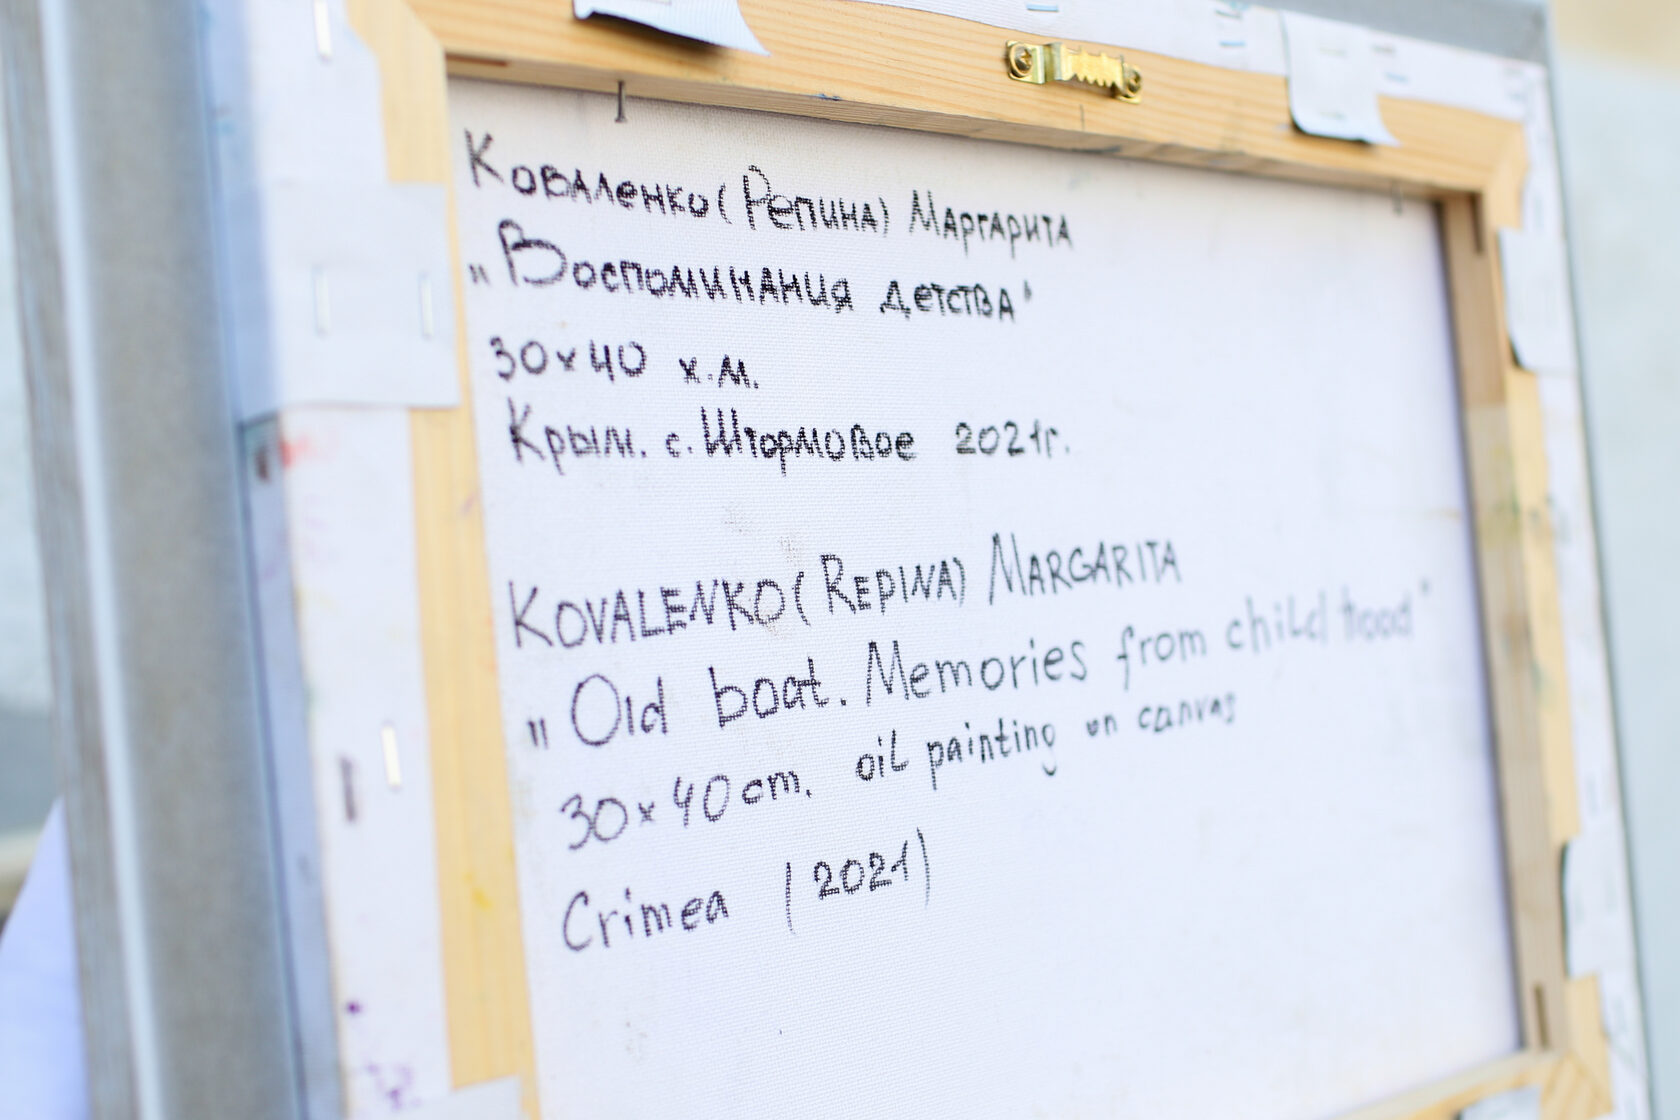 Коваленко (Репина) Маргарита
„Воспоминания детства"
30x40 х.м.
Крым. с. Штормовое 2021г.
KOVALENKO (REPINA) MARGARITA
„Old boat. Memories from childhood"
30x40cm. oil painting on canvas
Crimea (2021)